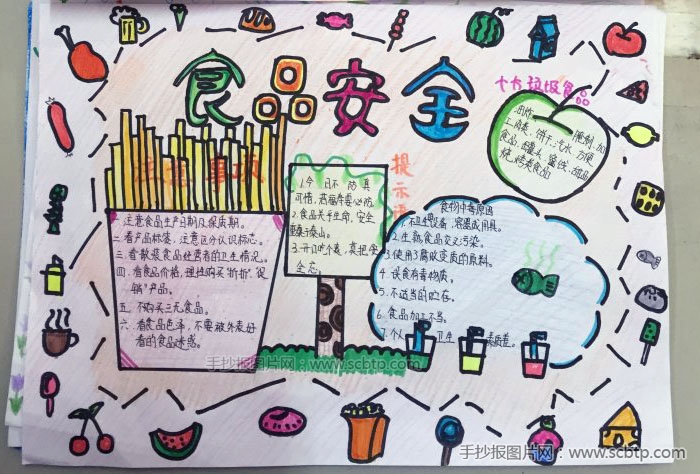 食品安全
十大垃圾食品
油炸、腌制、加
工肉类、饼干、汽水、方便
食品、罐头、蜜饯、甜品
烧烤类食品
注意事项
一.注意食品生产日期及保质期。
二.看产品标签，注意区分认识标志。
三.看散装食品经营者的卫生情况。
四.看食品价格，理性购买"打折""促
销"产品。
五.不购买三无食品。
六.看食品色泽，不要被外表好
看的食品迷惑。
提示语
1.今日不防患
2.食品关乎生命，安全
重于泰山。
食物中毒原因
2.生熟食品交叉污染。
3.使用了腐败变质的原料。
4.误食有毒物质。
5.不适当的贮存。
6.食品加工不当。
7.个人卫生
手抄报图片网：www.scbtp.com
手抄报图片网：www.scbtp.com